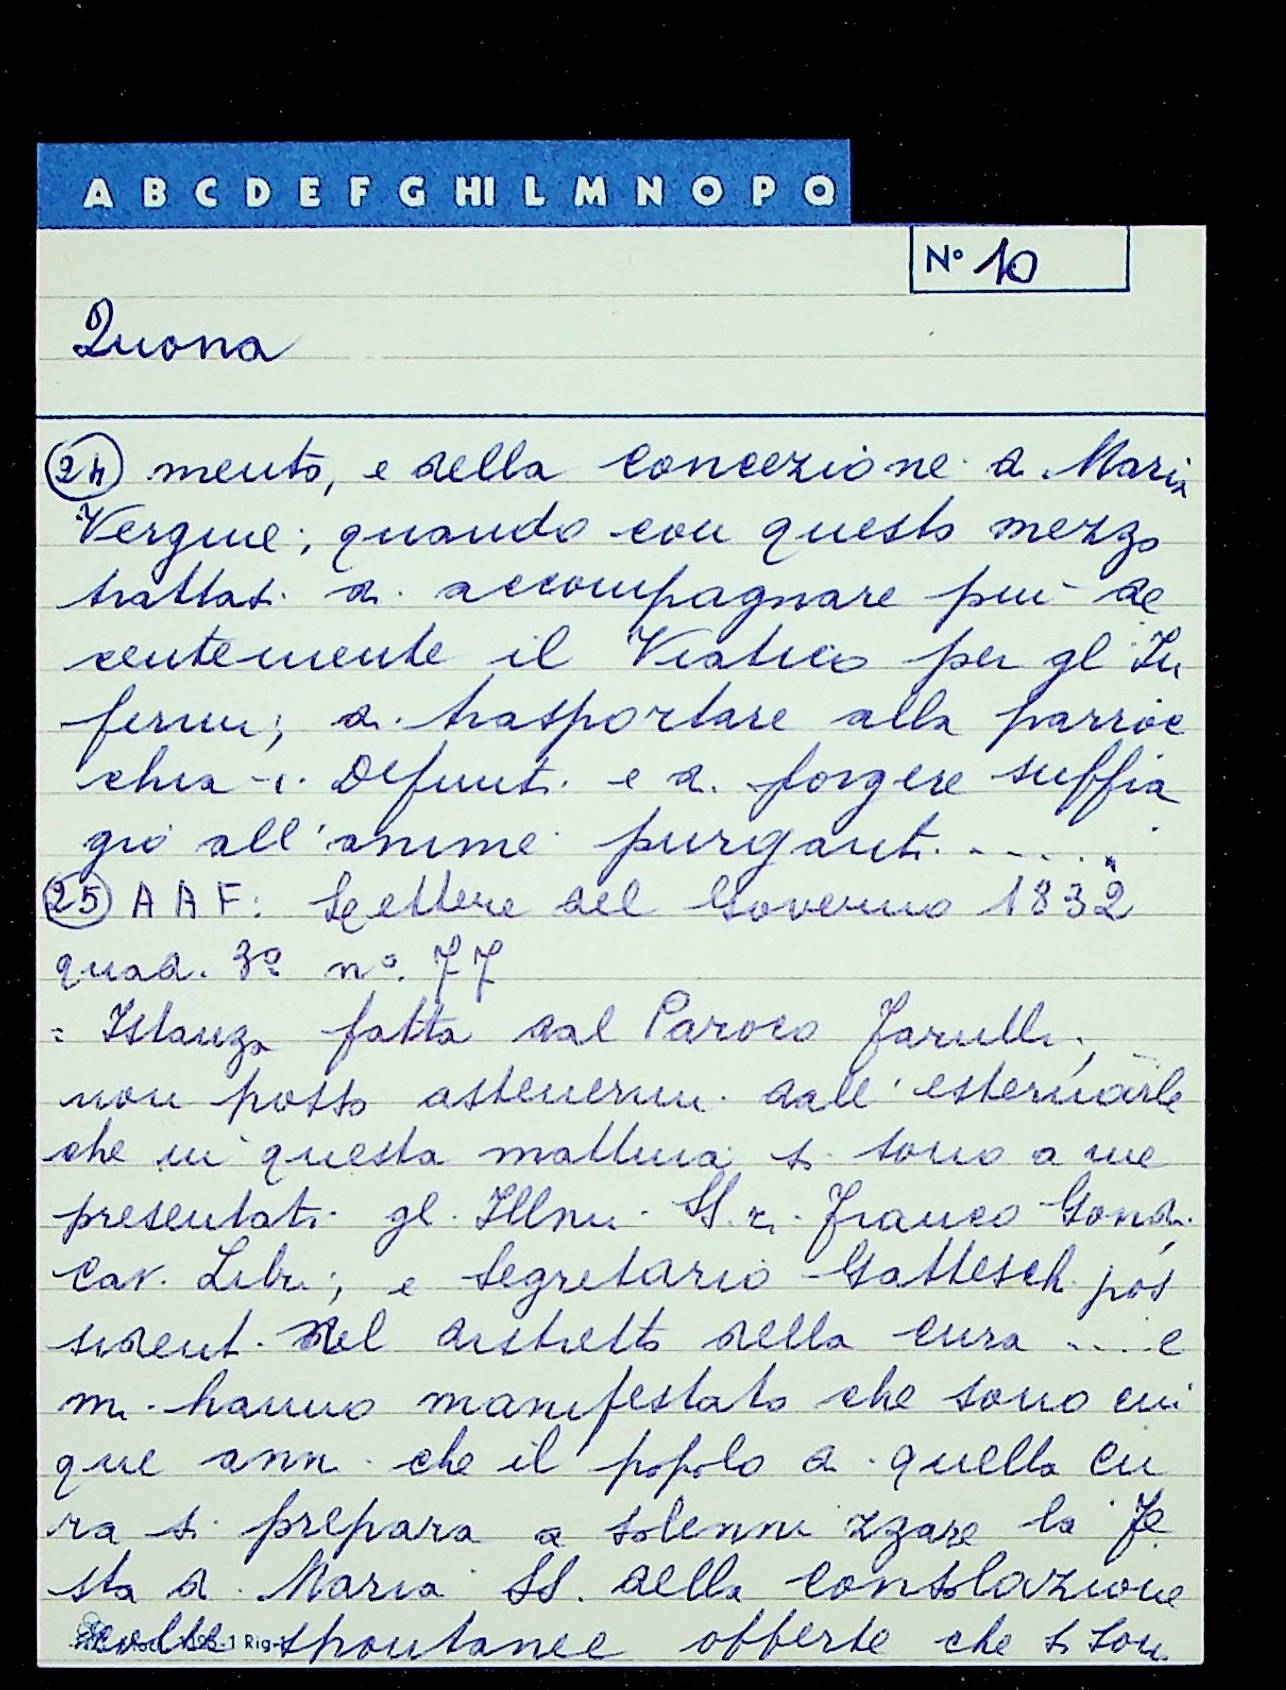 A B C D E F G HI L M N O P Q
N° 10
Quona
24 mento, e della Concezione di Maria
Vergine; quando con questo mezzo
trattasi di accompagnare più de
centemente il Viatico per gl'In
fermi; di trasportare alla parroc
chia i Defunti e di porgere suffra
gio all'anime purganti......"
25 AAF: Lettere del Governo 1832
quad. 3° n°. 77
= Istanza fatta dal Paroco Farulli;
non posso astenermi dall'esternarle
che in questa mattina si sono a me
presentati gl. Illmi. SS.ri. Franco Gondi,
Cav. Libri; e Segretario Gatteschi pos
sidenti nel distretto della cura ....e
mi hanno manifestato che sono cin
que anni che il popolo di quella cu
ra si prepara a solennizzare la Fe
sta di Maria SS. della Consolazione
colle spontanee offerte che si son
1 Rig-